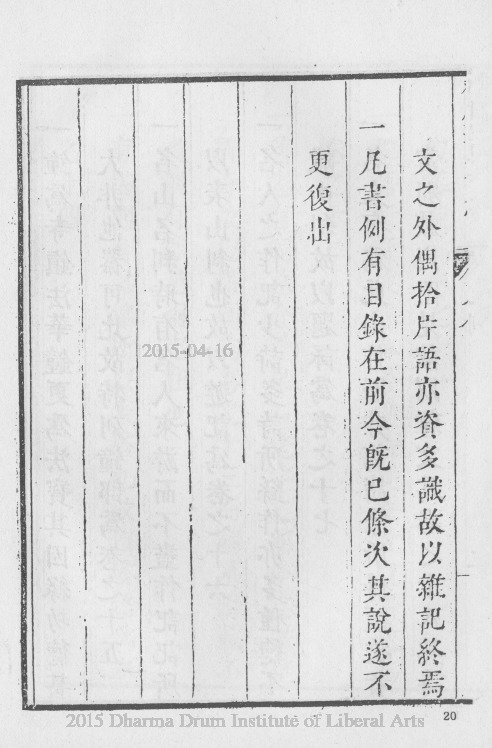 文之外偶拾片語亦資多識故以雜記終焉
一凡書例有目錄在前今既已條次其說遂不
更復出
2015-04-16
20
2015 Dharma Drum Institute of Liberal Arts